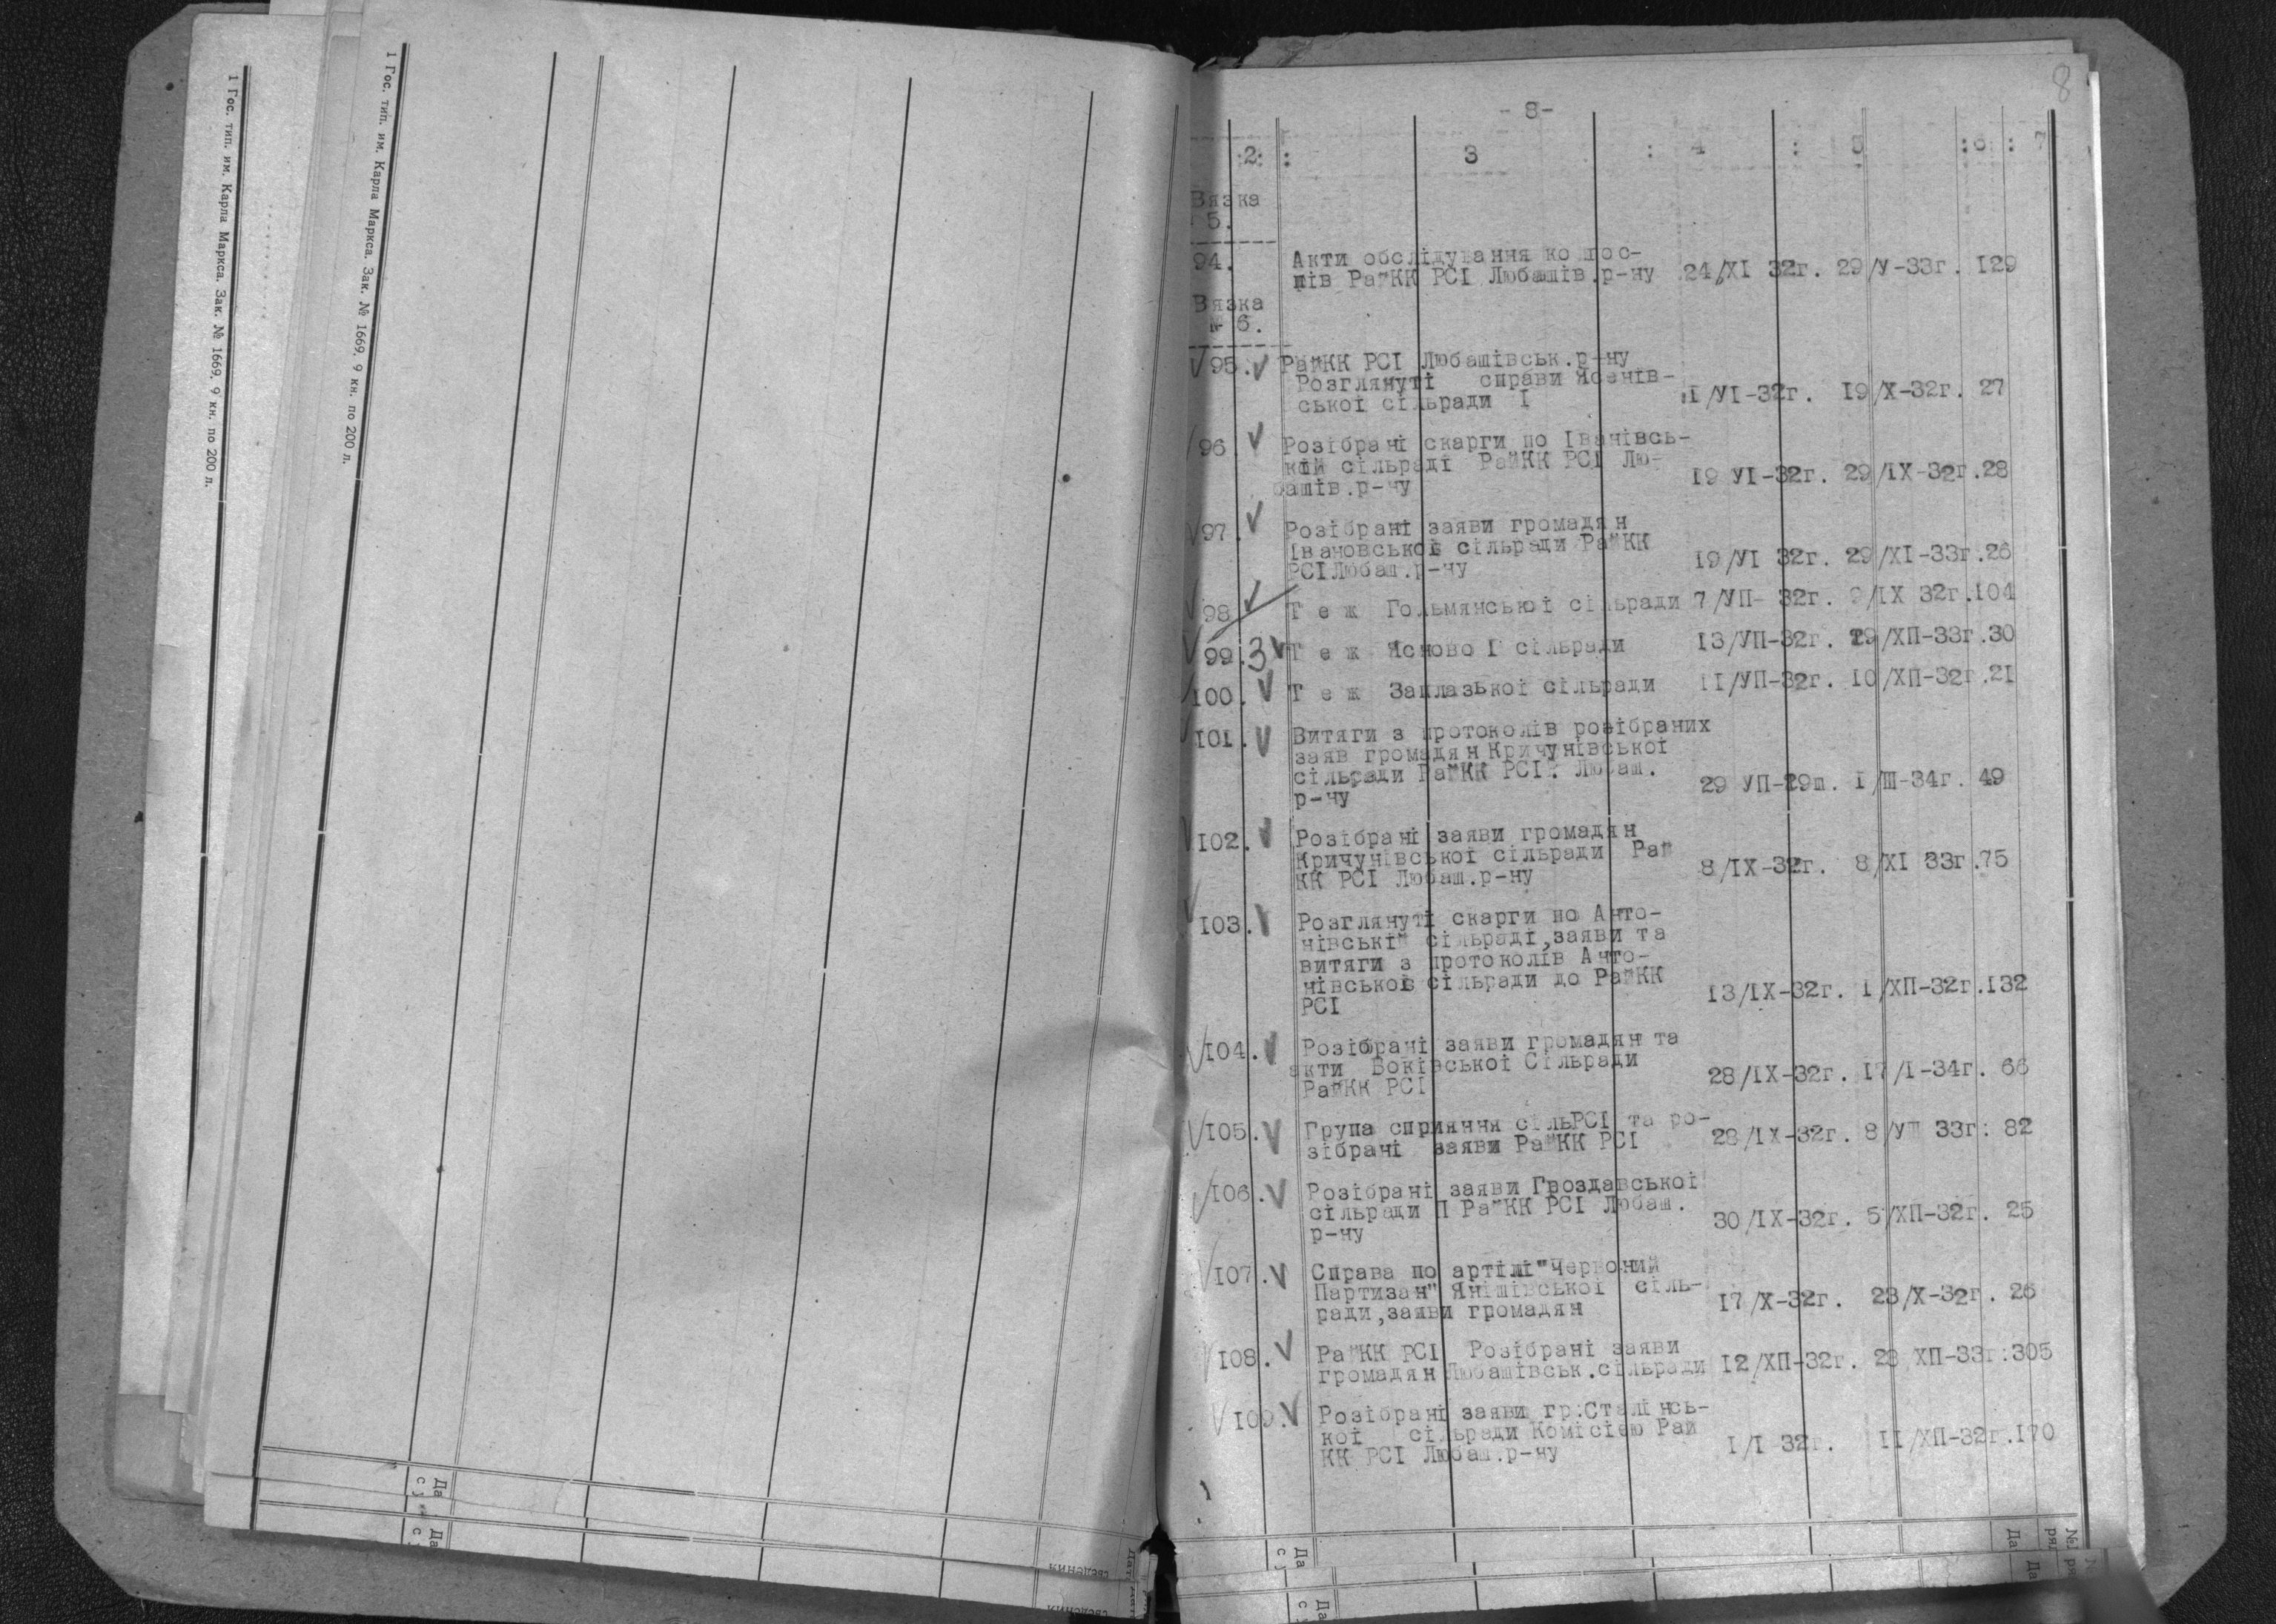 1 Гос. тип. им. Карла Маркса. Зак. № 1669. 9 кн. по 200 л.
1 Гос. тип. им. Карла Маркса. Зак. № 1669. 9 кн. по 200 л.
8
- 8-
:2: : 3 : 4 : 5 :6 : 7
Вязка
5.
94. Акти обслідування колгос-
пів РайКК РСІ Любашів.р-ну 24/ХІ 32г. 29/У-33г. 129
Вязка
№ 6.
95. РайКК РСІ Любашівськ.р-ну
Розглянуті справи Ясенів-
ської сільради І 1/УІ-32г. 19/Х-32г. 27
96. Розібрані скарги по Іванівсь-
кій сільраді РайКК РСІ Лю-
башів.р-ну 19 УІ-32г. 29/ІХ-32г.28
97. Розібрані заяви громадян
Івановської сільради РайКК
РСІ Любаш.р-ну 19/УІ 32г. 29/ХІ-33г.26
98. Т е ж Гольмянської сільради 7/УП- 32г. 9/ІХ 32г.104
99. 3 Т е ж Ясново І сільради 13/УП-32г. 29/ХП-33г.30
100. Т е ж Заплазької сільради 11/УП-32г. 10/ХП-32г.21
101. Витяги з протоколів розібраних
заяв громадян Кричунівської
сільради РайКК РСІ . Любаш.
р-ну 29 УП-29ш. 1/Ш-34г. 49
102. Розібрані заяви громадян
Кричунівської сільради Рай
КК РСІ Любаш.р-ну 8/ІХ-32г. 8/ХІ 33г.75
103. Розглянуті скарги по Анто-
нівській сільраді,заяви та
витяги з протоколів Анто-
нівської сільради до РайКК
РСІ 13/ІХ-32г. 1/ХП-32г.132
104. Розібрані заяви громадян та
акти Боківської Сільради
РайКК РСІ 28/ІХ-32г. 17/І-34г. 66
105. Група сприяння сільРСІ та ро-
зібрані заяви РайКК РСІ 28/ІХ-32г. 8/УШ 33г: 82
106. Розібрані заяви Гвоздавської
сільради П РайКК РСІ Любаш.
р-ну 30/ІХ-32г. 5/ХП-32г. 25
107. Справа по артілі "Червоний
Партизан" Янішівської сіль-
ради,заяви громадян 17/Х-32г. 28/Х-32г. 26
108. РайКК РСІ Розібрані заяви
громадян Любашівськ.сільради 12/ХП-32г. 28 ХП-33г:305
109. Розібрані заяви гр.Сталінсь-
кої сільради Комісією Рай
КК РСІ Любаш.р-ну 1/І 32г. 11/ХП-32г.170